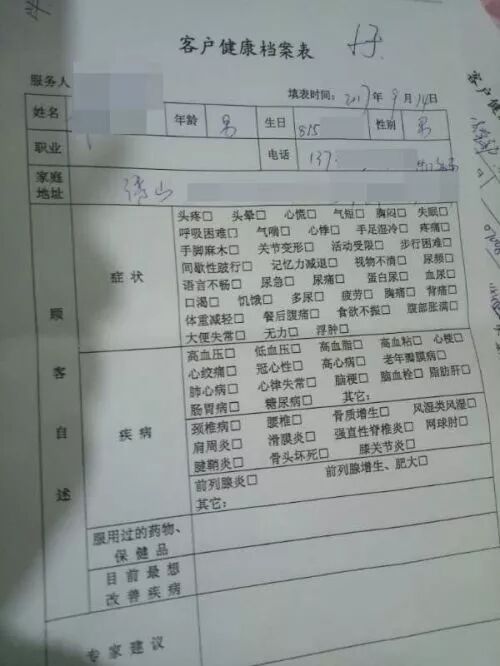 客户健康档案表
服务人
填表时间：2017年9月14日
姓名 年龄 男 生日 815 性别 男
职业 电话 137
家庭地址
顾客自述
症状
头疼□ 头晕□ 心慌□ 气短□ 胸闷□ 失眠□
呼吸困难□ 气喘□ 心悸□ 手足湿冷□ 疼痛□
手脚麻木□ 关节变形□ 活动受限□ 步行困难□
间歇性跛行□ 记忆力减退□ 视物不清□ 尿频□
语言不畅□ 尿急□ 尿痛□ 蛋白尿□ 血尿□
口渴□ 饥饿□ 多尿□ 疲劳□ 胸痛□ 背痛□
体重减轻□ 餐后腹痛□ 食欲不振□ 腹部胀满□
大便失常□ 无力□ 浮肿□
疾病
高血压□ 低血压□ 高血脂□ 高血粘□ 心梗□
心绞痛□ 冠心性□ 高心病□ 老年瓣膜病□
肺心病□ 心律失常□ 脑梗□ 脑血栓□ 脂肪肝□
肠胃病□ 糖尿病□ 其它：
颈椎病□ 腰椎□ 骨质增生□ 风湿类风湿□
肩周炎□ 滑膜炎□ 强直性脊椎炎□ 网球肘□
腱鞘炎□ 骨头坏死□ 膝关节炎□
前列腺炎□ 前列腺增生、肥大□
其它：
服用过的药物、保健品
目前最想改善疾病
专家建议